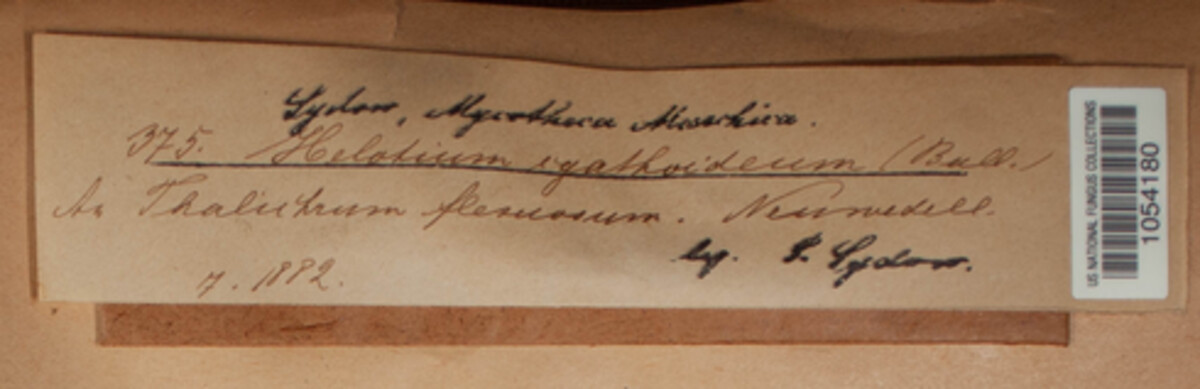 Sydow, Mycotheca Marchica.
375. Helotium cyathoideum (Bull.)
An Thalictrum flexuosum. Neuwedell.
lg. P. Sydow.
7. 1882.
US NATIONAL FUNGUS COLLECTIONS
1054180